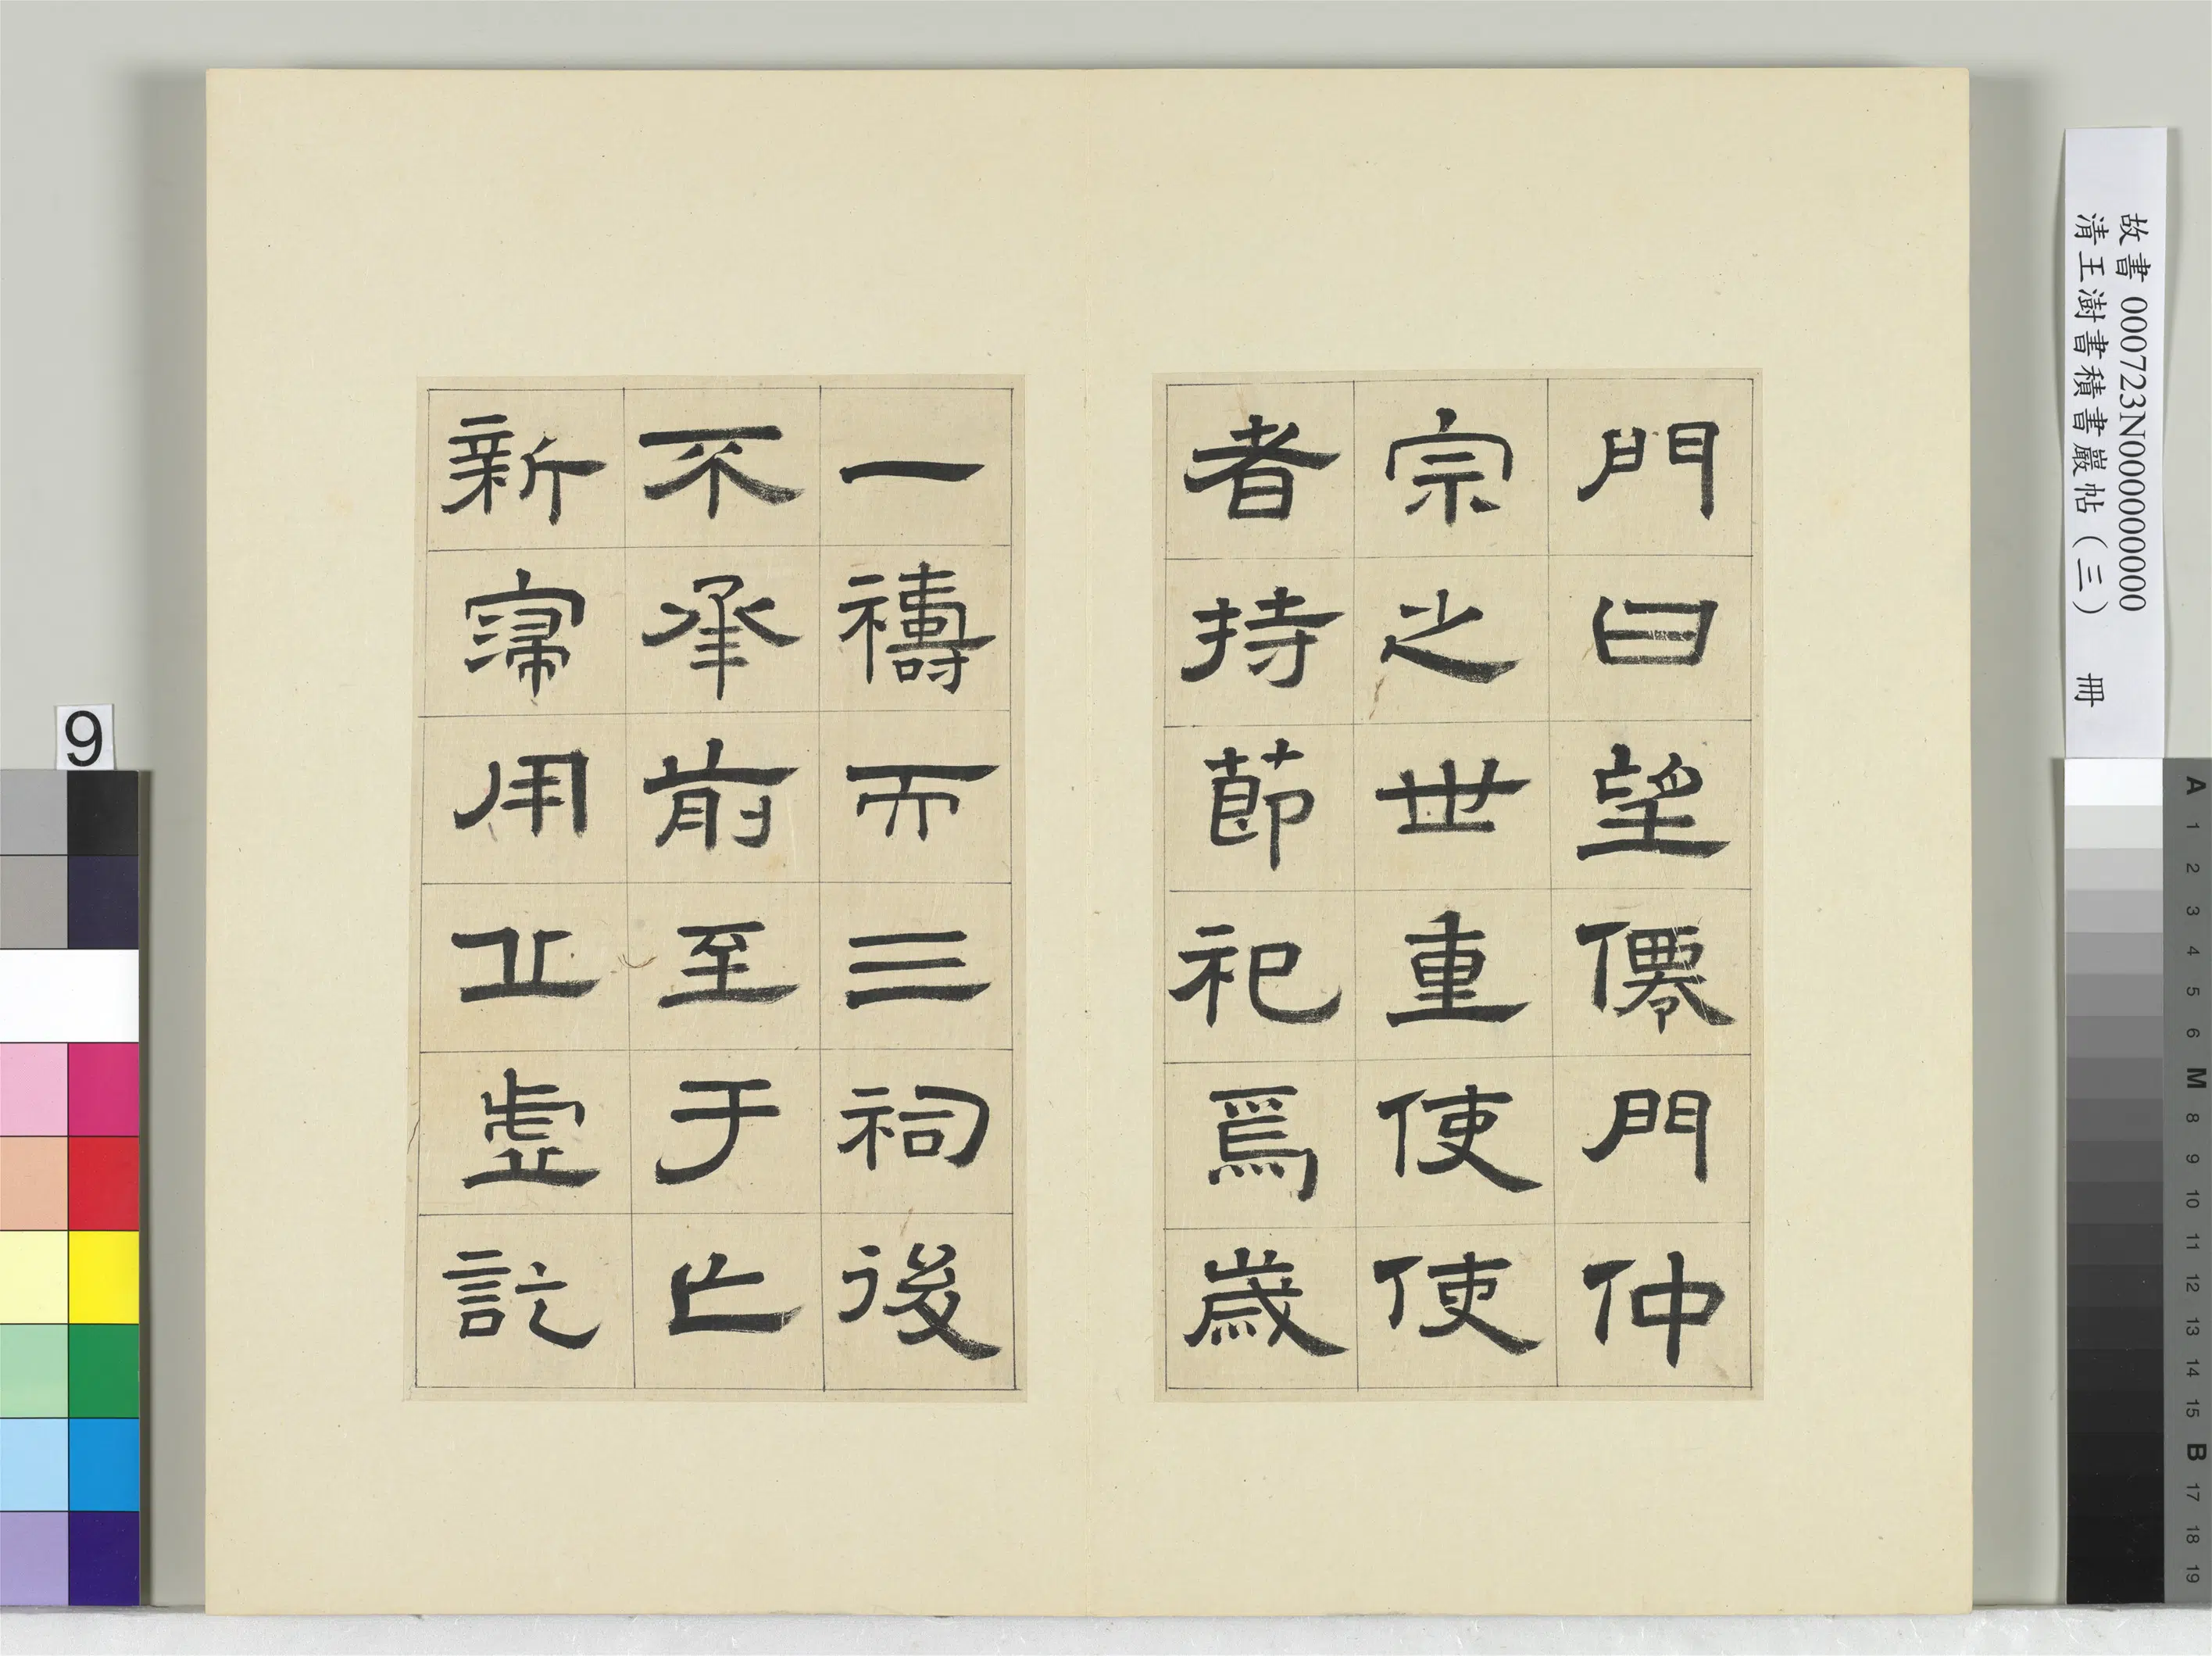 故書 000723N000000000
清王澍書積書巖帖（三） 冊
門曰望僊門仲
宗之世重使使
者持節祀焉歲
一禱而三祠後
不承前至于亡
新寖用丘虛訖
9
A 1 2 3 4 5 6 M 8 9 10 11 12 13 14 15 B 17 18 19